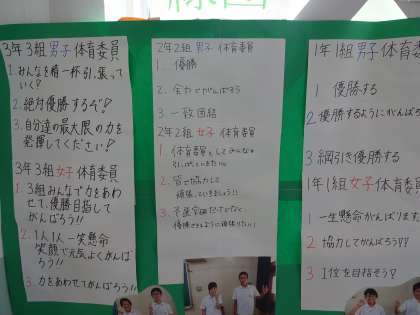 3年3組男子体育委員
1.みんなを精一杯引っ張って
いく?
2.絶対優勝するぞ!
3.自分達の最大限の力を
発揮してください?
3年3組女子体育委員
1.3組みんなで力をあわ
せて、優勝目指して
がんばろう!!
2.1人1人一生懸命
笑顔で元気よくがんば
ろう!!
3.力をあわせてがんばろう!!
2年2組男子体育委員
1. 優勝
2. 全力でがんばろう
3. 一致団結
2年2組女子体育委員
1. 体育委員としてみんなを
引っぱっていきたい。
2. 皆で協力して
頑張っていきましょう!!
3.
優勝できるように頑張りたい!
1年1組男子体育委員
1 優勝する
2 優勝するようにがんばる
3 綱引き優勝する
1年1組女子体育委員
1 一生懸命がんばります
2 協力してがんばろう
3 1位を目指そう?